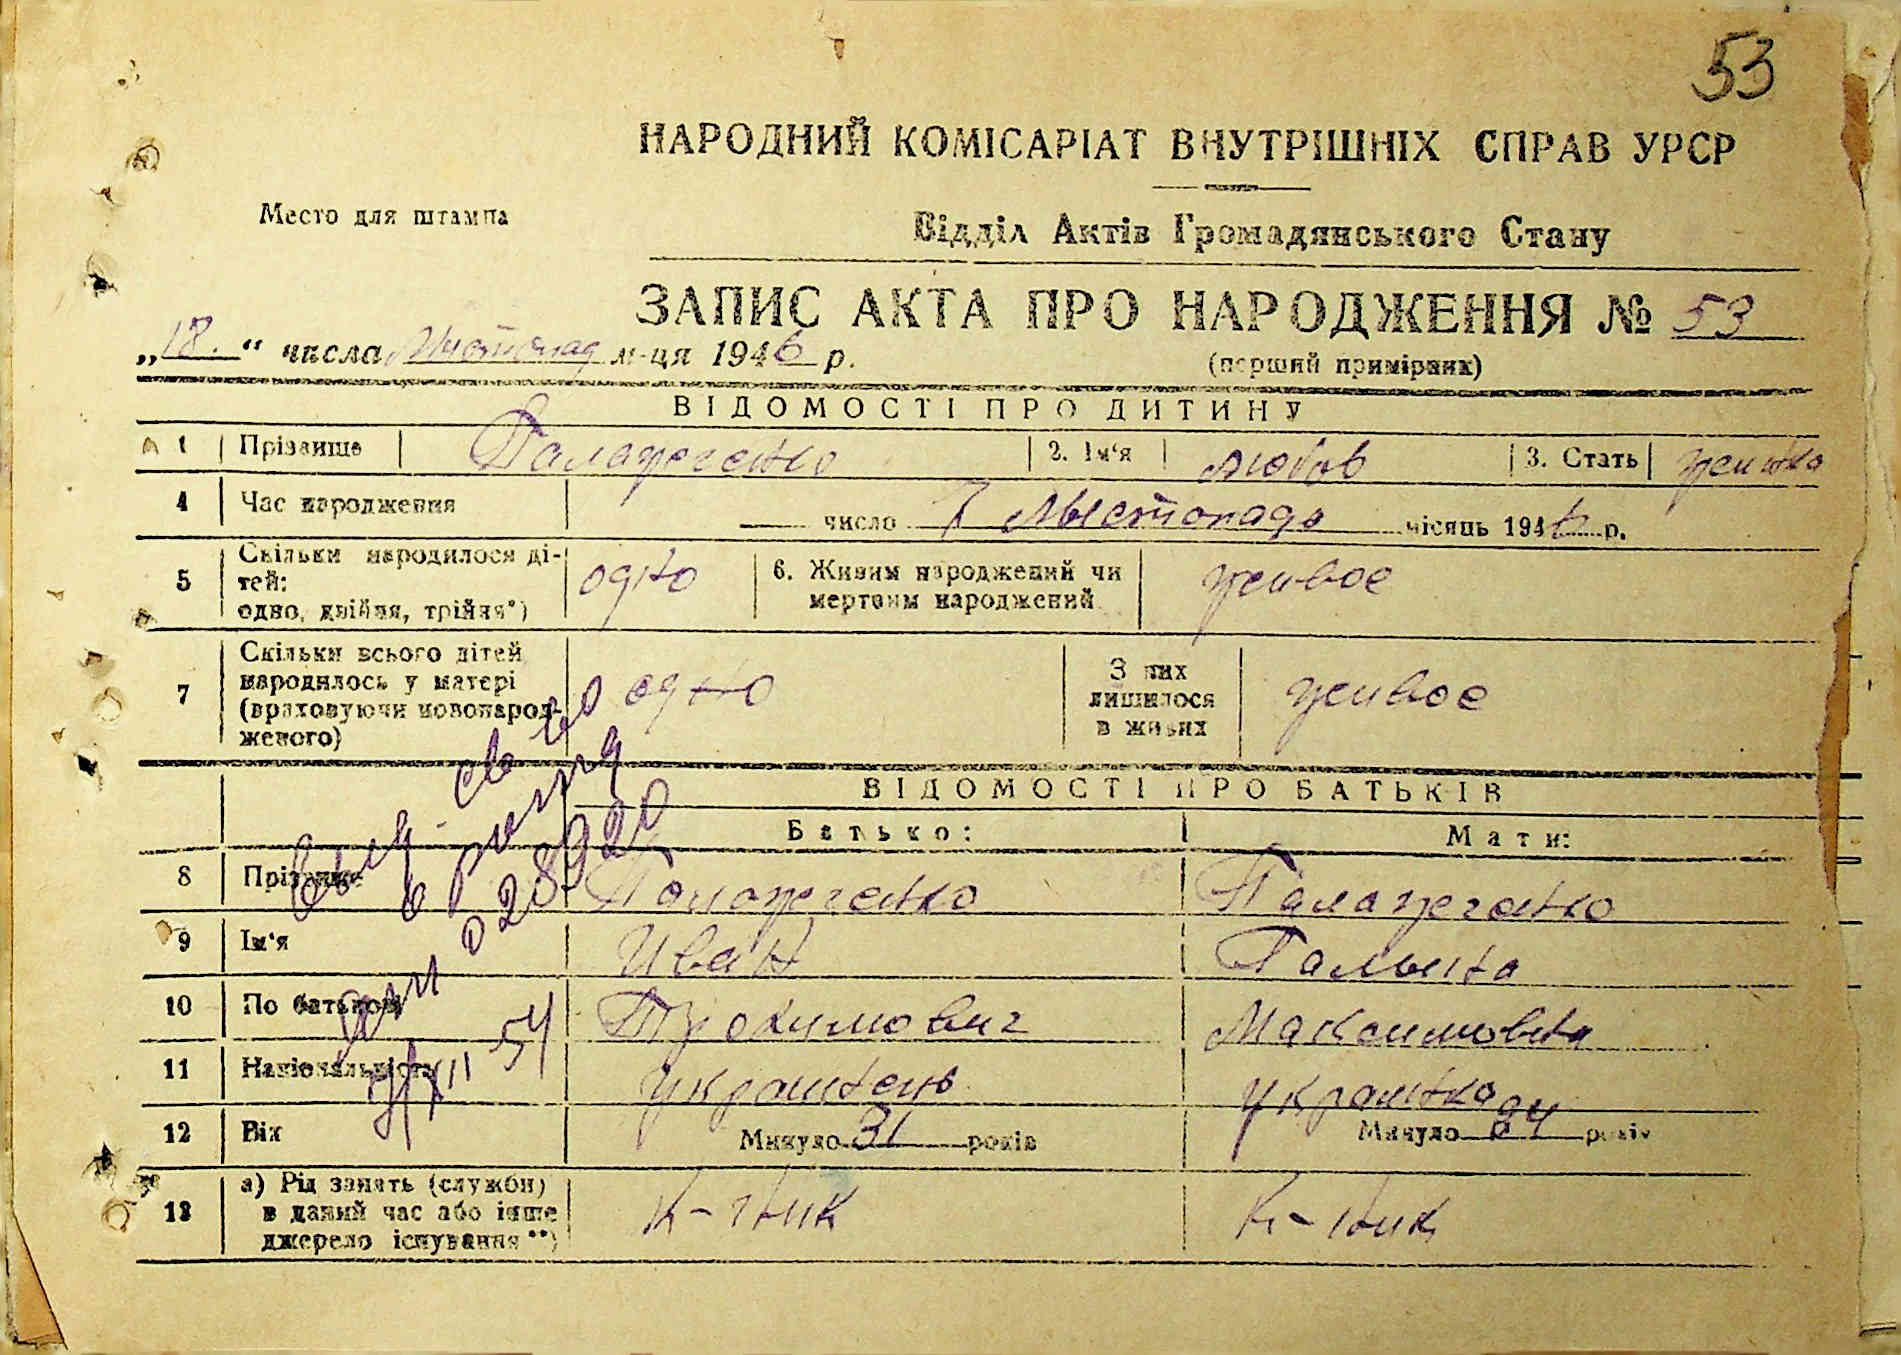 53
НАРОДНИЙ КОМІСАРІАТ ВНУТРІШНІХ СПРАВ УРСР
Место для штампа
Відділ Актів Громадянського Стану
ЗАПИС АКТА ПРО НАРОДЖЕННЯ № 53
„18.“ числа Листопад м-ця 1946 р.
(перший примірник)
ВІДОМОСТІ ПРО ДИТИНУ
1 Прізвище Палажченко 2. Ім'я Любов 3. Стать
4 Час народження число 7 Лыстопада місяць 1946 р.
5 Скільки народилося ді-
тей:
одно, двійня, трійня*) одно 6. Живим народжений чи
мертвим народжений живое
7 Скільки всього дітей
народилось у матері
(враховуючи новонарод-
женого) одно З них
лишилося
в живих живое
ВІДОМОСТІ ПРО БАТЬКІВ
Батько: Мати:
8 Прізвище Палажченко Палажченко
9 Ім'я Иван Галына
10 По батькові Трохимович Максимовна
11 Національність Украинець Украинка
12 Вік Минуло 31 років Минуло 24 років
13 а) Рід занять (служби)
в даний час або інше
джерело існування**) К-ник К-ник
028920
XII 54